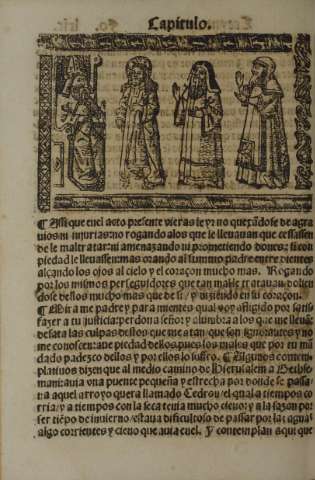 Capitulo.
¶ Assi que enel acto presente vieras le yr no quexãdose de agra
uios ni injurias: no rogando alos que le lleuauan que cessassen
de le maltratar: ni amenazando ni prometiendo dones: si con
piedad le lleuassen: mas orando al summo padre entre dientes
alçando los ojos al cielo y el coraçon mucho mas. Rogando
por los mismos perseguidores que tan mal le tratauan. dolien
dose dellos mucho mas que de si / y diziendo en su coraçon.
¶ Mira me padre y para mientes qual voy afligido por satis
fazer a tu justicia: perdona señor y alumbra a los que me lleuã
desata las culpas destos que me atan que son ignorantes y no
me conoscen: aue piedad dellos pues los males que por tu mã
dado padezco dellos y por ellos lo suffro. ¶ Algunos contem
platiuos dizen que al medio camino de Hierusalem a Gethse
mani: auia vna puente pequeña y estrecha por donde se passa
ua aquel arroyo que era llamado Cedron / el qual a tiempos co
rria / y a tiempos con la seca tenia mucho cieno: y a la sazon por
ser tiẽpo de inuierno / estaua dificultoso de passar por la agua
algo corrientes y cieno que auia enel. Y contemplan aqui que